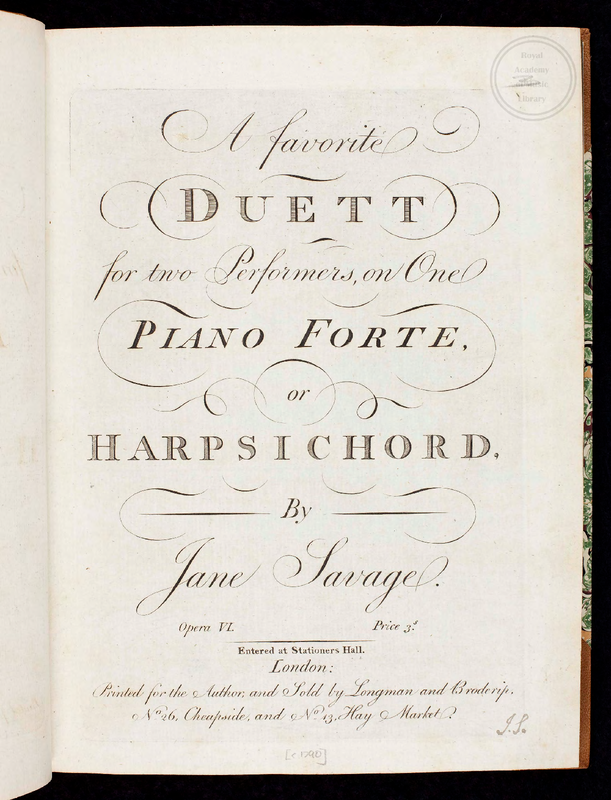 Royal
Academy
of Music
Library
A favorite
DUETT
for two Performers, on One
PIANO FORTE,
or
HARPSICHORD,
By
Jane Savage.
Opera VI. Price 3s
Entered at Stationers Hall.
London:
Printed for the Author, and Sold by Longman and Broderip,
No. 26, Cheapside, and No. 13, Hay Market.
J.S.
[c 1790]